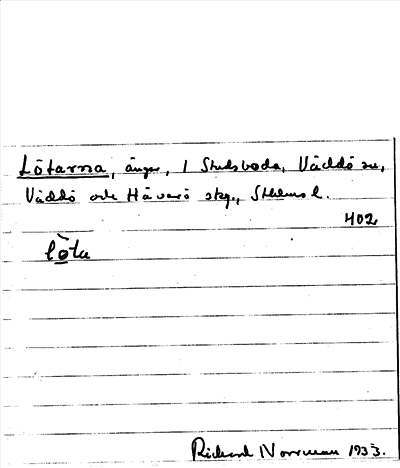 Lötarna, ängar, 1 Studsboda, Väddö sn,
Väddö och Häverö skg., Sthlms l.
402
lö̀ta
Richard Norrman 1933.